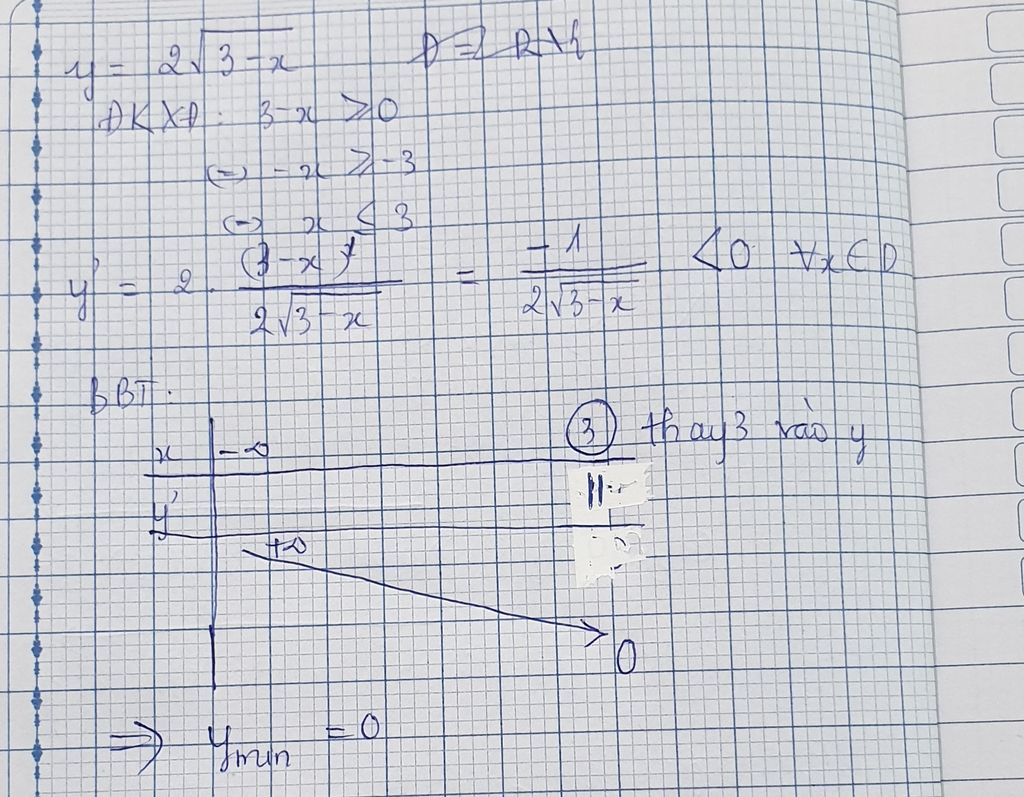 y = 2√(3-x) D = R\{
ĐKXĐ: 3-x ≥ 0
(=) -x ≥ -3
(=) x ≤ 3
y' = 2. (3-x)' / 2√(3-x) = -1 / 2√(3-x) < 0 ∀x ∈ D
BBT:
x -∞ 3 thay 3 vào y
y' ||
+∞
0
=> ymin = 0